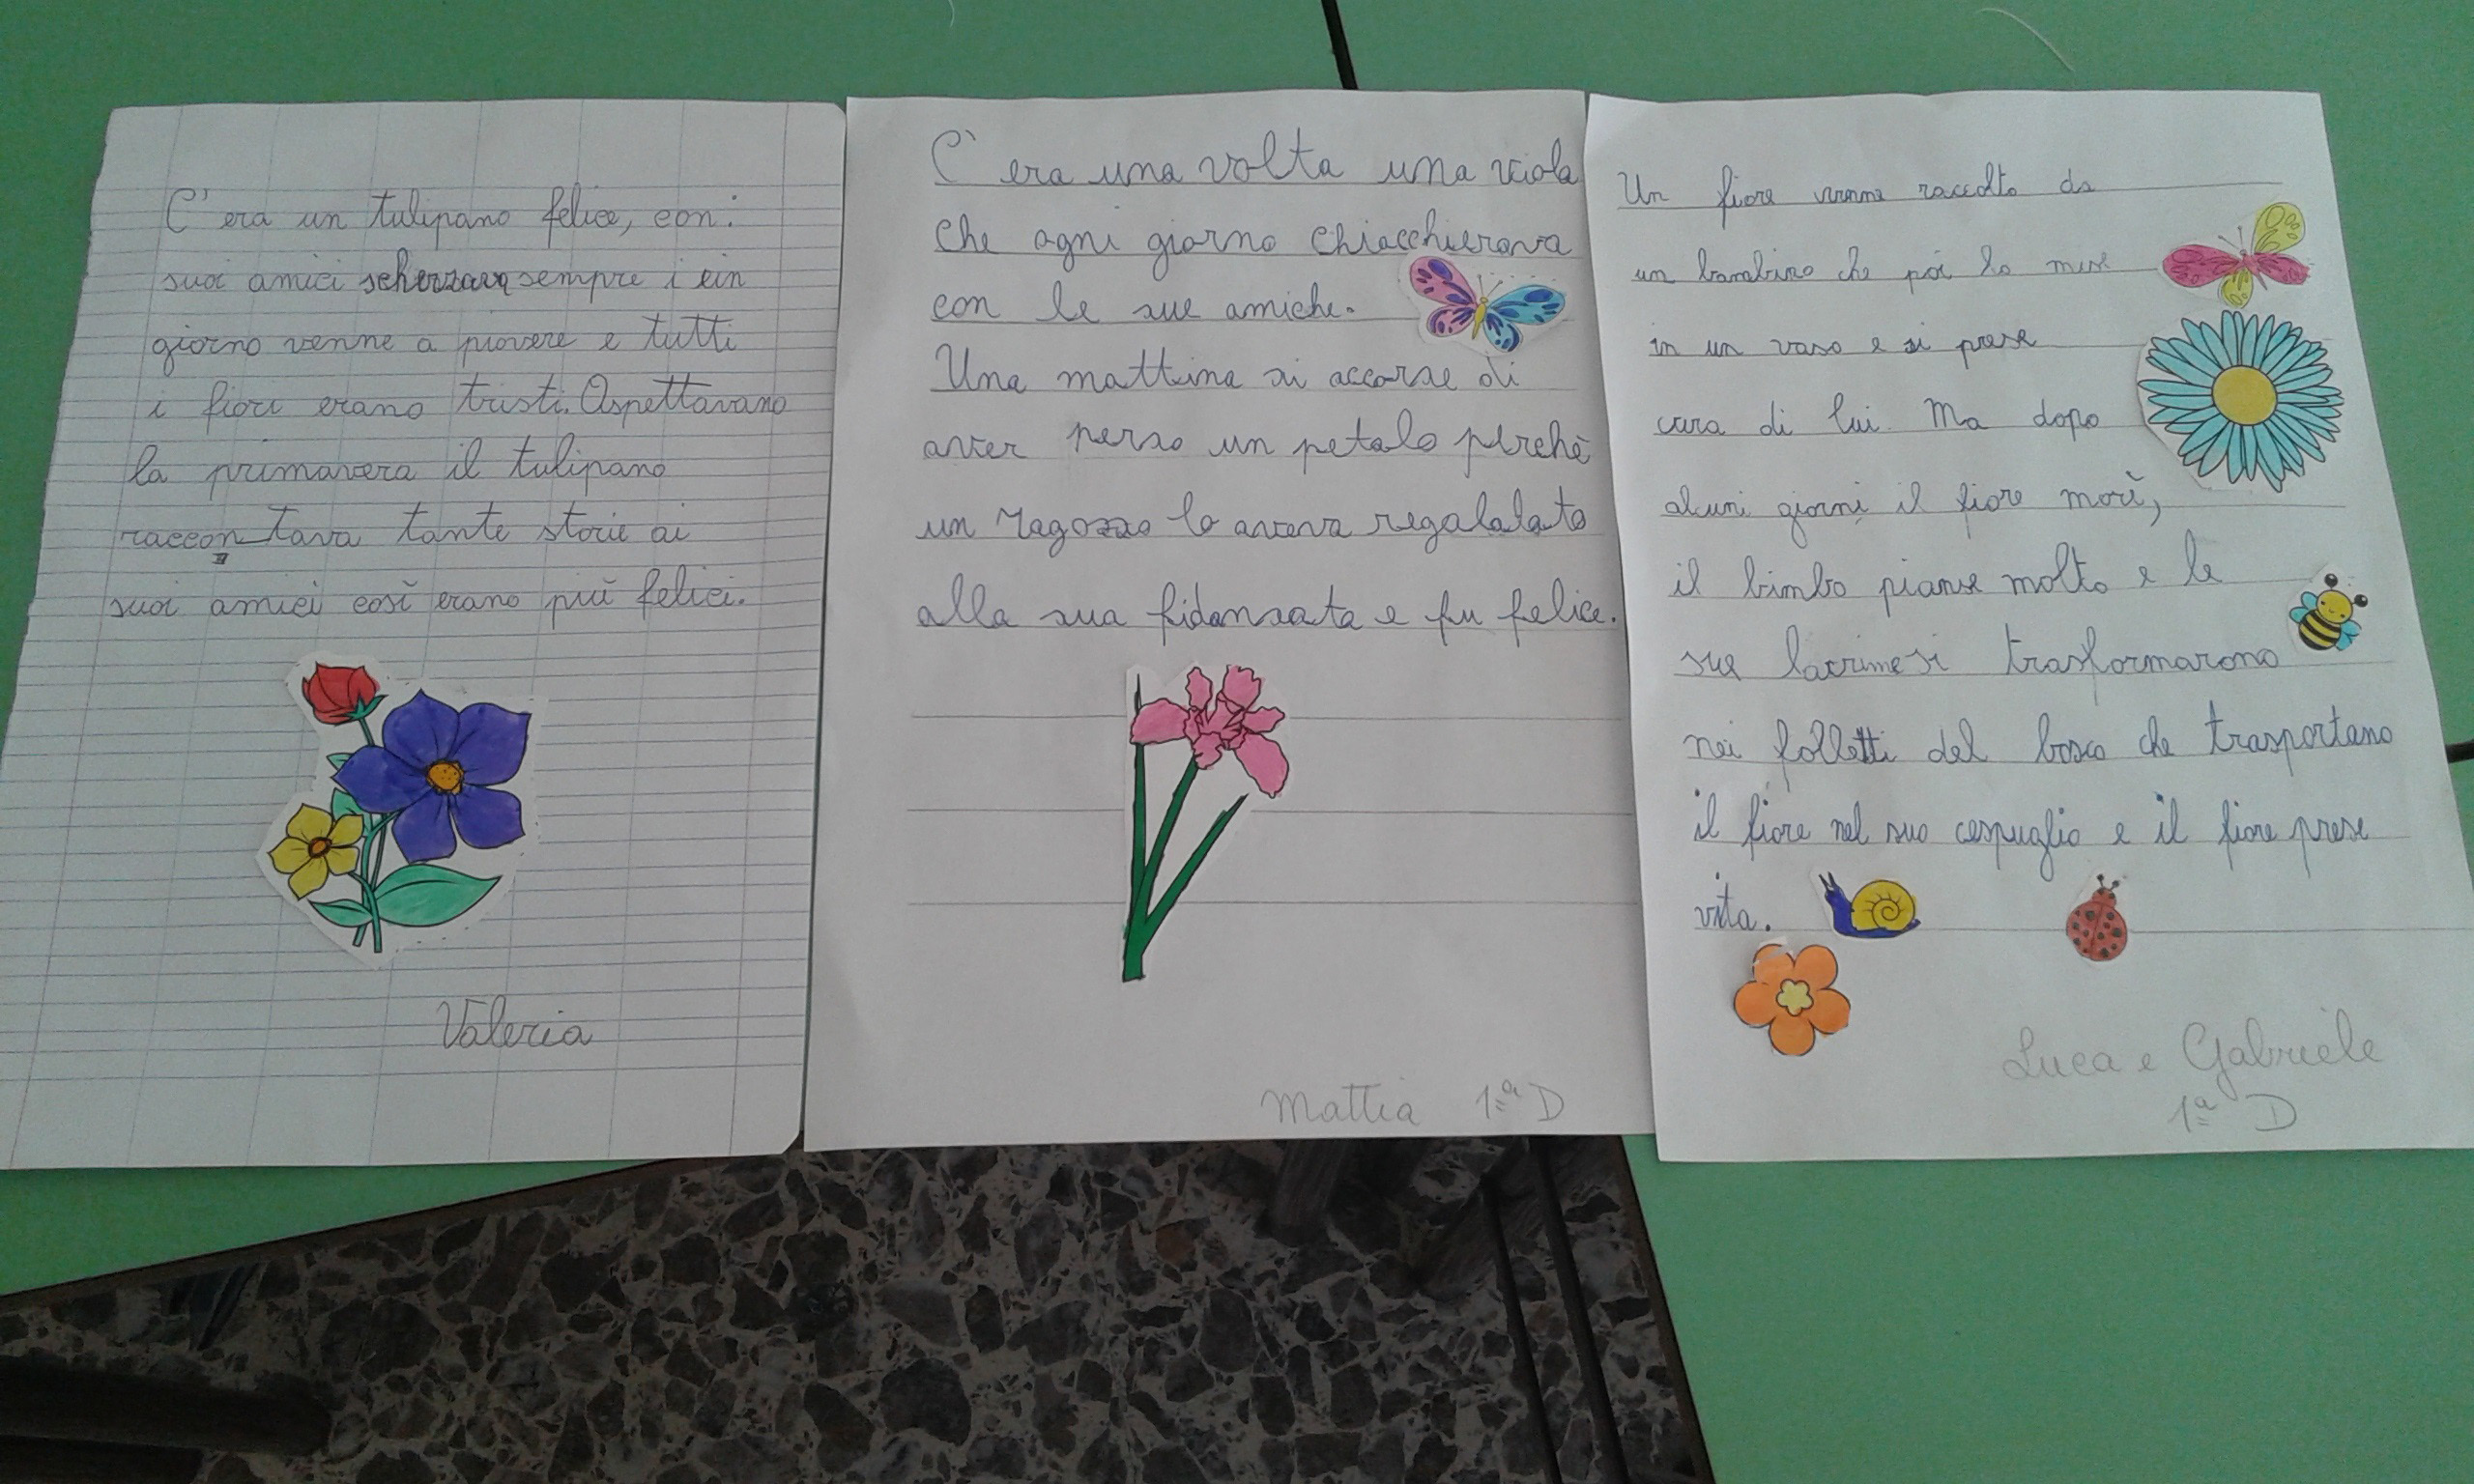 C'era un tulipano felice, con i
suoi amici scherzava sempre i ein
giorno venne a piovere e tutti
i fiori erano tristi. Aspettavano
la primavera il tulipano
raccontava tante storie ai
suoi amici così erano più felici.
Valeria
C'era una volta una viola
che ogni giorno chiacchierava
con le sue amiche.
Una mattina si accorse di
aver perso un petalo perchè
un ragazzo lo aveva regalalato
alla sua fidanzata e fu felice.
Mattia 1ª D
Un fiore venne raccolto da
un bambino che poi lo mise
in un vaso e si prese
cura di lui. Ma dopo
alcuni giorni il fiore morì,
il bimbo pianse molto e le
sue lacrime si trasformarono
nei folletti del bosco che trasportano
il fiore nel suo cespuglio e il fiore prese
vita.
Luca e Gabriele
1ª D